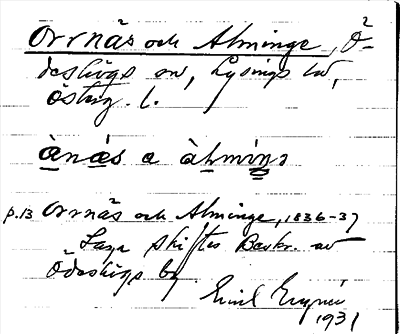 Orrnäs och Alminge, Ö-
deshögs sn, Lysings hd,
Österg. l.
ànǽs a àlmiŋə
p.13 Orrnäs och Alminge, 1836-37
Laga skiftes Beskr. av
Ödeshögs by
Emil
1931